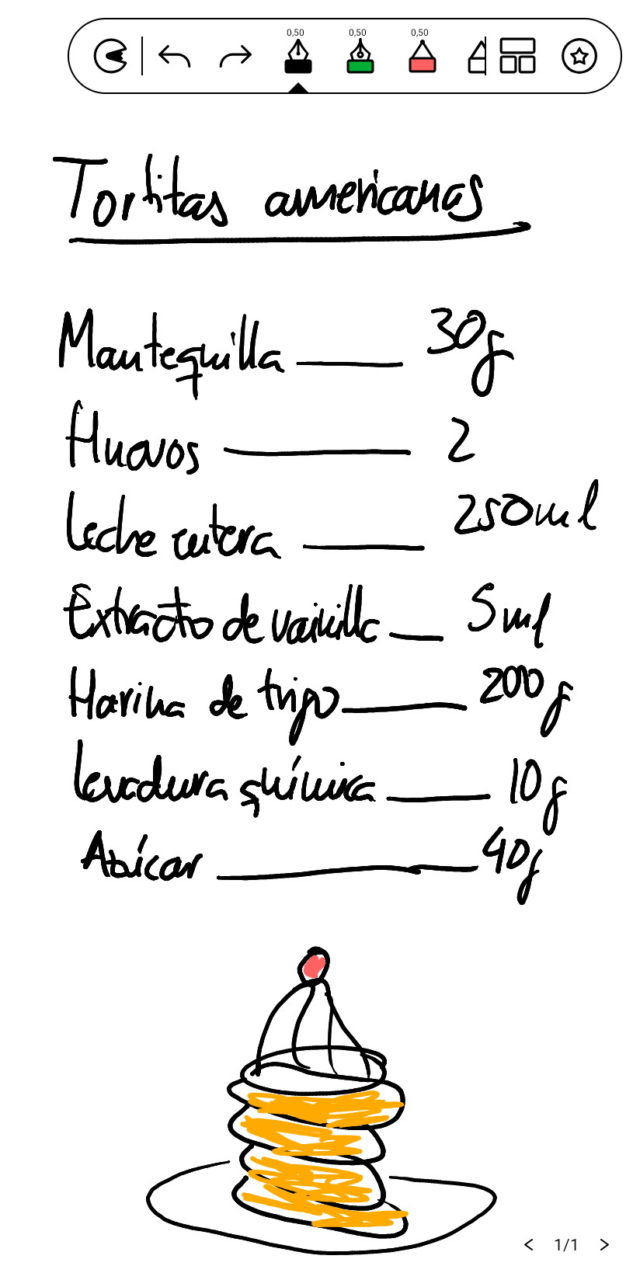 0,50 0,50 0,50
Tortitas americanas
Mantequilla 30g
Huevos 2
Leche entera 250ml
Extracto de vainilla 5ml
Harina de trigo 200g
Levadura química 10g
Azúcar 40g
1/1